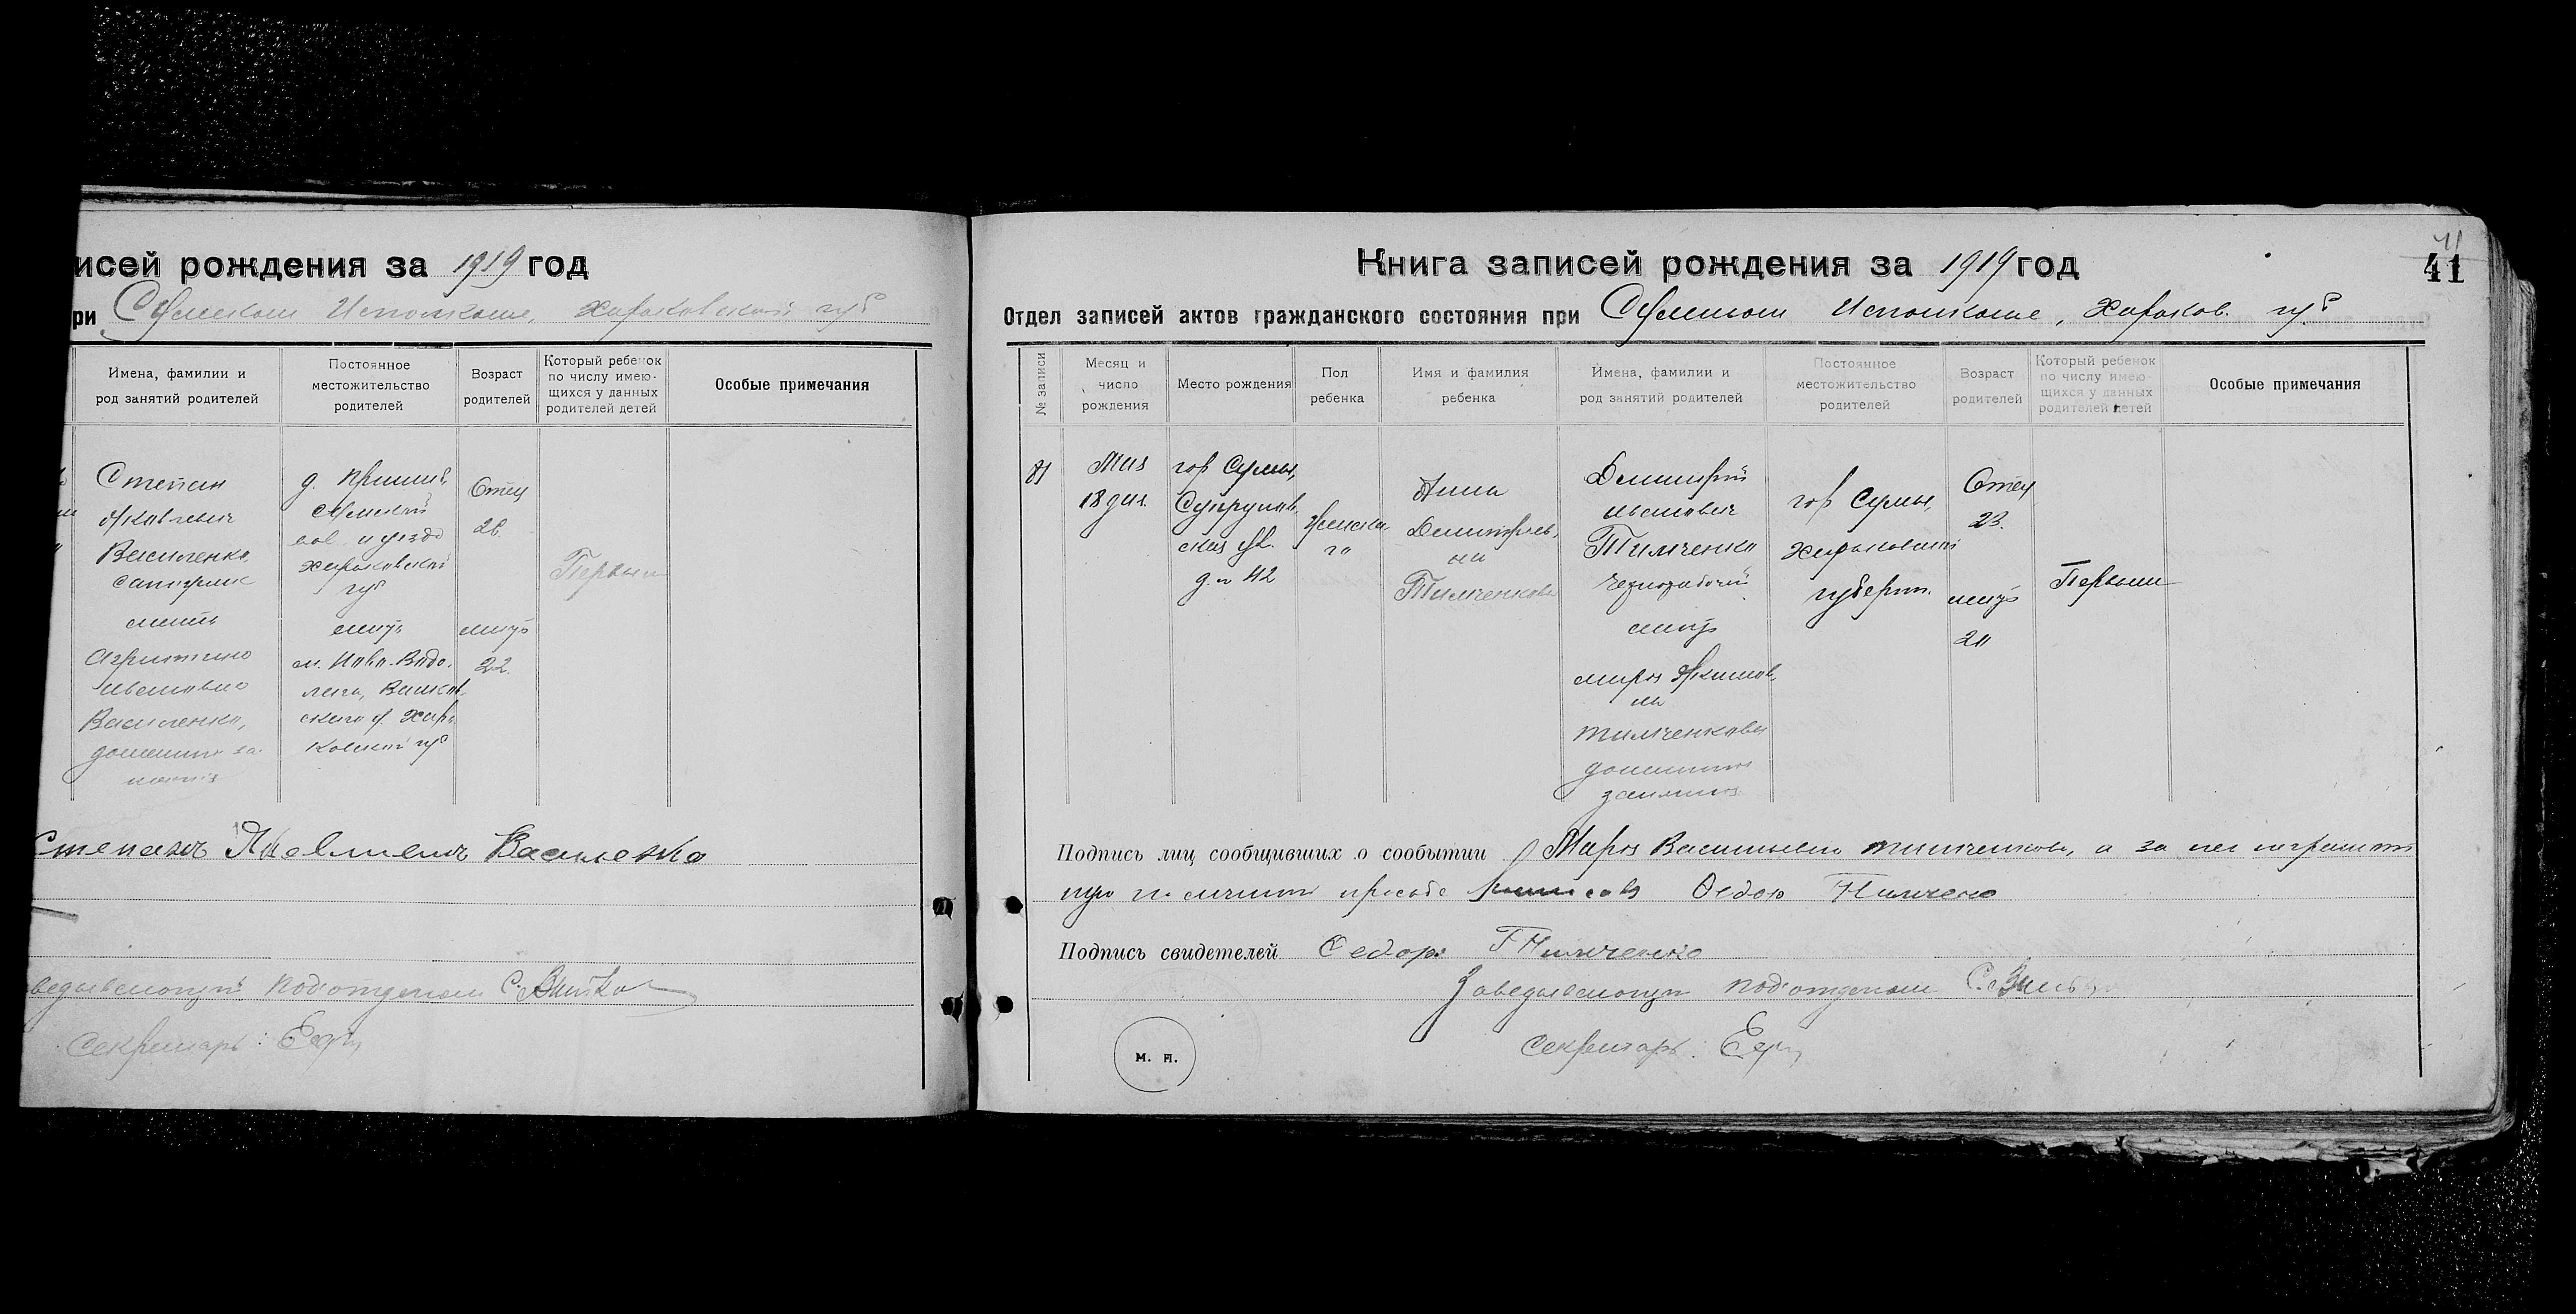 исей рождения за 1919 год
ри Сумском Исполкоме, Харьковской губ
Имена, фамилии и
род занятий родителей
Постоянное
местожительство
родителей
Возраст
родителей
Который ребенок
по числу имею-
щихся у данных
родителей детей
Особые примечания
Степан
Яковлевич
Василенко,
мать
Ивановна
Василенко,
домашн. за-
д.
Сумской
вол. и уезда
Харьковской
губ
мать
м. Ново-Водо-
лага, Валков-
ского у. Харь-
ковской губ
Отец
26.
мать
22.
Первый
Степанъ Василенко
аведывающий подотделом С.
Секретарь:
41
41
Книга записей рождения за 1919 год
Отдел записей актов гражданского состояния при Сумском Исполкоме, Харьков. губ
№ записи
Месяц и
число
рождения
Место рождения
Пол
ребенка
Имя и фамилия
ребенка
Имена, фамилии и
род занятий родителей
Постоянное
местожительство
родителей
Возраст
родителей
Который ребенок
по числу имею-
щихся у данных
родителей детей
Особые примечания
Мая
18 дня.
гор Сумы,
Супрунов-
ская ул.
д. № 42
Женска-
го
Анна
Димитриев-
на
Тимченкова
Димитрий
Иванович
Тимченко
чернорабочий
мать
Мария Якимов-
на
Тимченкова
домашние
занятия
гор Сумы,
Харьковской
губерни.
Отец
23.
мать
20
Первый
Подпись лиц сообщивших о событии Мария Васильевна Тимченкова, а за нее неграмот
ную по личной просьбе
Подпись свидетелей Федоръ Тимченко
Заведывающий подотделом С.
Секретарь:
М. П.